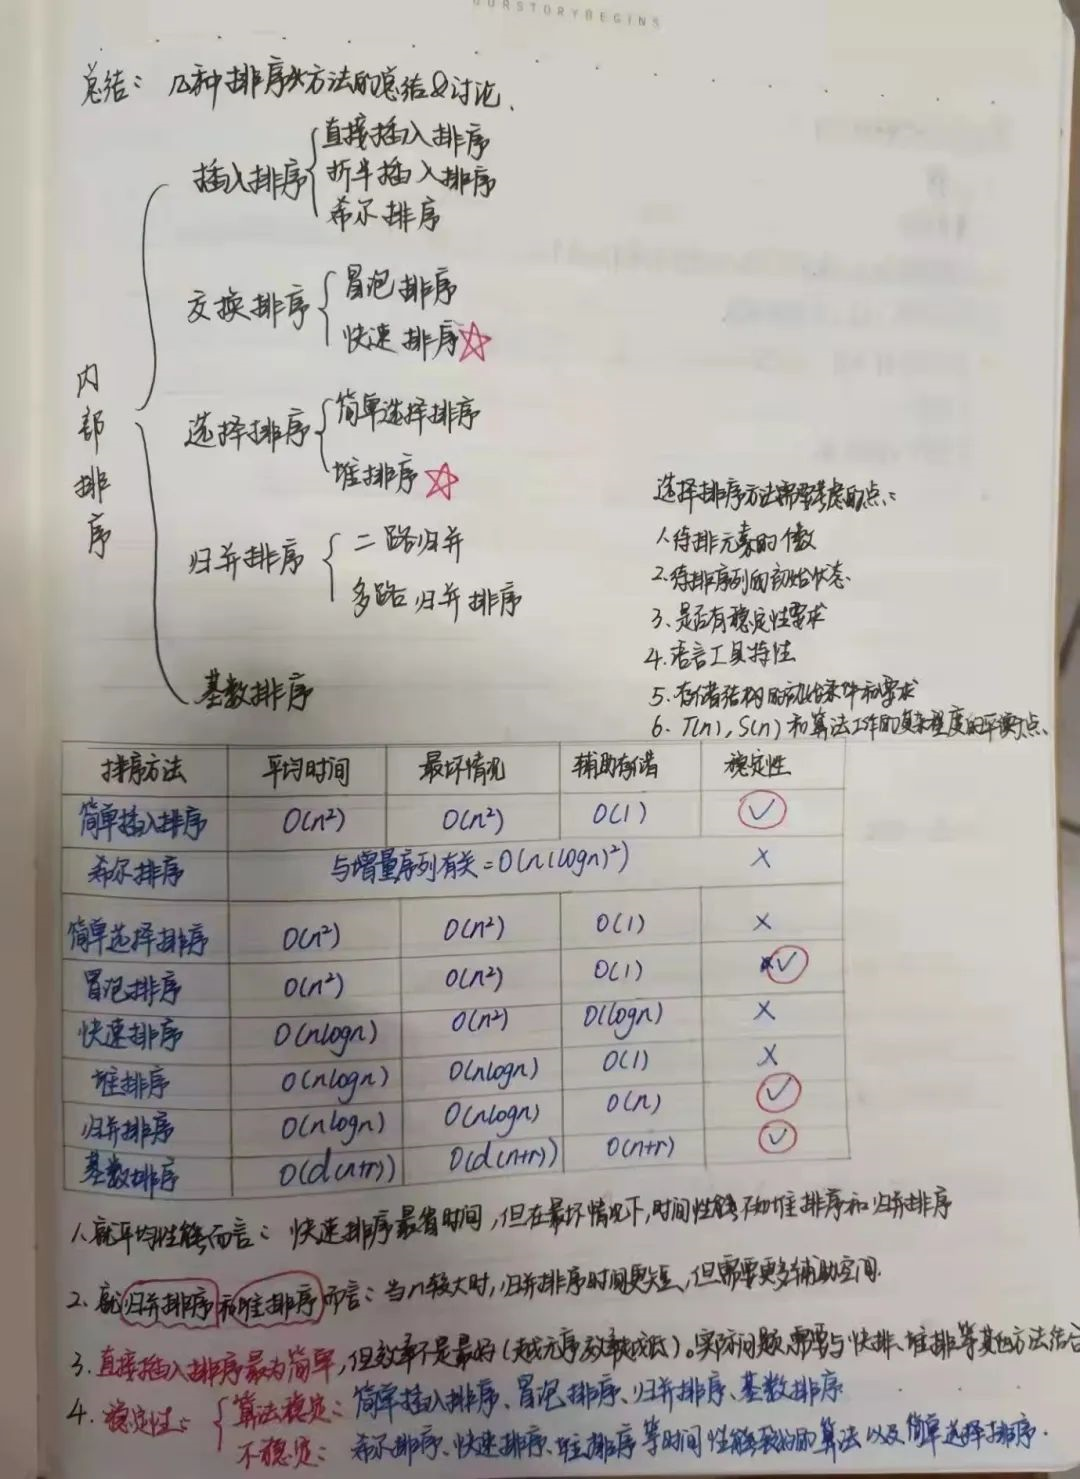 OURSTORYBEGINS
总结：几种排序方法的总结&讨论.
内部排序
插入排序
直接插入排序
折半插入排序
希尔排序
交换排序
冒泡排序
快速排序☆
选择排序
简单选择排序
堆排序☆
归并排序
二路归并
多路归并排序
基数排序
选择排序方法需要考虑的点：
1、待排元素的个数
2、待排序列的初始状态
3、是否有稳定性要求
4、语言工具特性
5、存储结构的初始条件和要求
6、T(n), S(n)和算法工作的复杂程度的平衡点、
排序方法 平均时间 最坏情况 辅助存储 稳定性
简单插入排序 O(n²) O(n²) O(1) ✓
希尔排序 与增量序列有关=O(n(logn)²) ×
简单选择排序 O(n²) O(n²) O(1) ×
冒泡排序 O(n²) O(n²) O(1) ✓
快速排序 O(nlogn) O(n²) O(logn) ×
堆排序 O(nlogn) O(nlogn) O(1) ×
归并排序 O(nlogn) O(nlogn) O(n) ✓
基数排序 O(d(n+r)) O(d(n+r)) O(n+r) ✓
1、就平均性能而言：快速排序最省时间，但在最坏情况下，时间性能不如堆排序和归并排序
2、就归并排序和堆排序而言：当n较大时，归并排序时间更短，但需要更多辅助空间.
3、直接插入排序最为简单，但效率不是最好(越无序效率越低)。实际问题需要与快排、堆排等其他方法结合
4、稳定性：
算法稳定：简单插入排序、冒泡排序、归并排序、基数排序
不稳定：希尔排序、快速排序、堆排序等时间性能较好的算法以及简单选择排序.